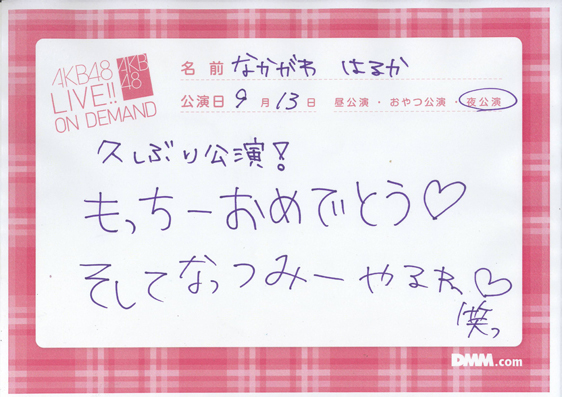 AKB48
LIVE!!
ON DEMAND
AKB
48
名 前 なかがわ はるか
公演日 9 月 13 日 昼公演・おやつ公演・夜公演
久しぶり公演!
もっちーおめでとう♡
そしてなっつみーやるわ♡
笑っ
DMM.com